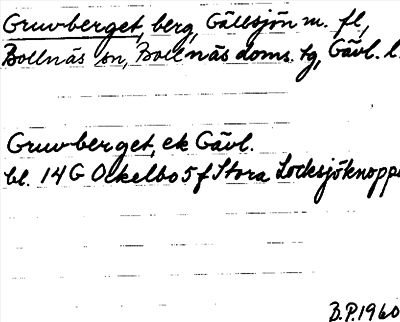 Gruvberget, berg, Gällsjön m. fl,
Bollnäs sn, Bollnäs doms. tg, Gävl. l.
Gruvberget, ek Gävl.
bl. 14 G Ockelbo 5 f Stora Locksjöknopp
B.P. 1960